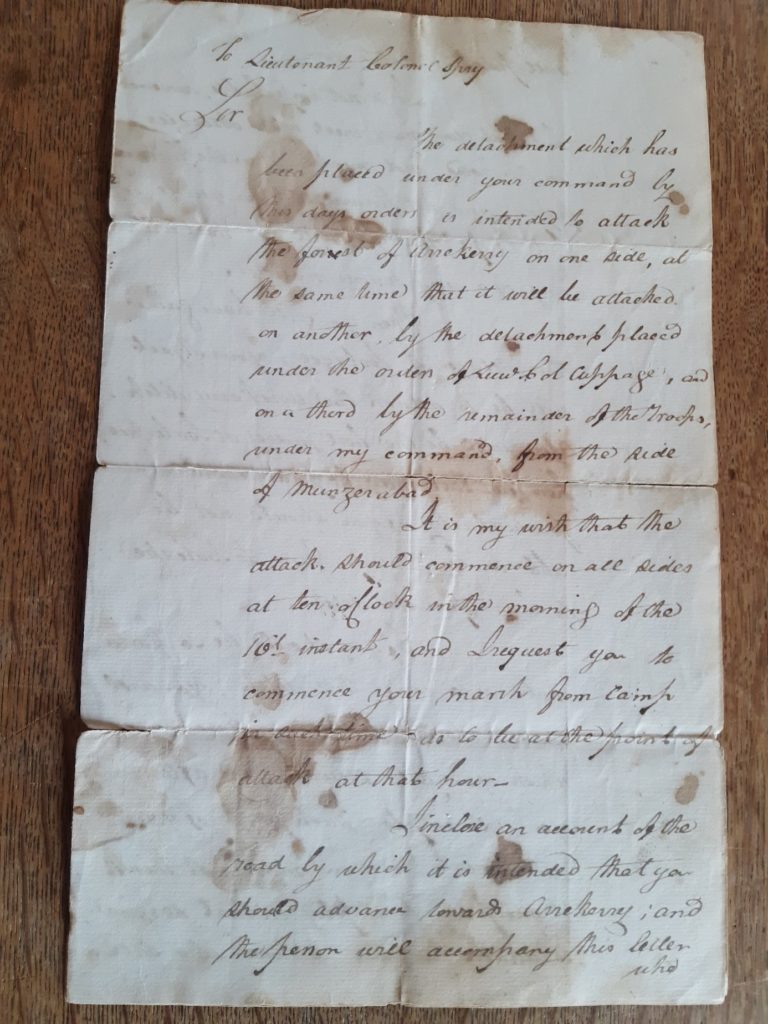 To Lieutenant Colonel Spry
Sir
The detachment which has
been placed under your command by
this days orders is intended to attack
the forest of Arrekerry on one side, at
the same time that it will be attacked
on another, by the detachment placed
under the orders of Lieut. Col Cuppage, and
on a third by the remainder of the Troops,
under my command, from the side
of Munzerabad
It is my wish that the
attack should commence on all sides
at ten o'Clock in the morning of the
16t. instant, and I request you to
commence your march from Camp
in such time as to be at the point of
attack at that hour—
I inclose an account of the
road by which it is intended that you
should advance towards Arrekerry; and
the person will accompany this letter
who